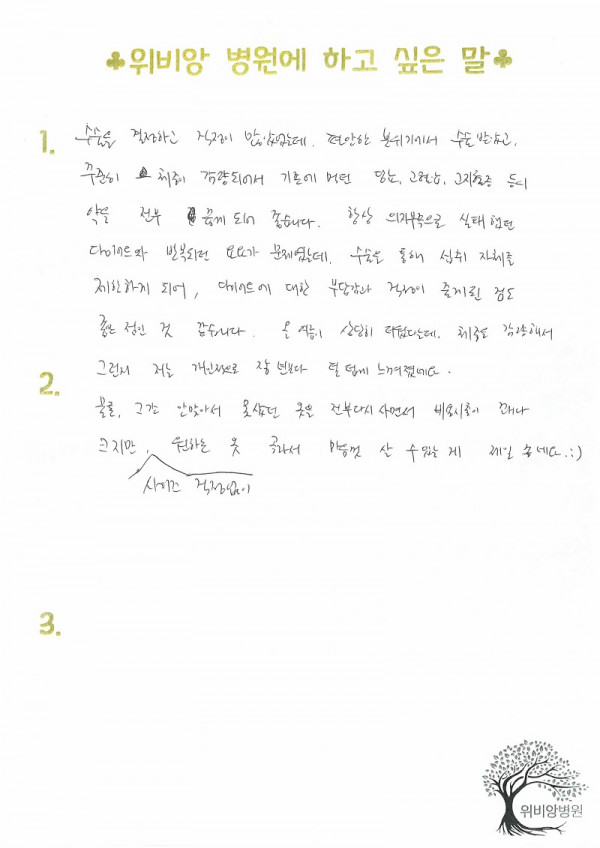 ♣위비앙 병원에 하고 싶은 말♣
1.
수술을 결정하고 걱정이 많았었는데, 편안한 분위기에서 수술 받았고,
꾸준히 체중이 감량되어서 기존에 먹던 당뇨, 고혈압, 고지혈증 등의
약을 전부 끊게 되어 좋습니다. 항상 의지부족으로 실패했던
다이어트와 반복되던 요요가 문제였는데, 수술을 통해 섭취 자체를
제한하게 되어, 다이어트에 대한 부담감과 걱정이 줄게된 점도
좋은 점인 것 같습니다. 올 여름이 상당히 더웠다는데, 체중도 감량해서
그런지 저는 개인적으로 작년보다 덜 덥게 느껴졌네요.
2.
물론, 그간 안맞아서 못샀던 옷을 전부다시 사면서 비용지출이 꽤나
크지만, 원하는 옷 골라서 마음껏 살 수있는 게 제일 좋네요.:)
사이즈 걱정없이
3.
위비앙병원